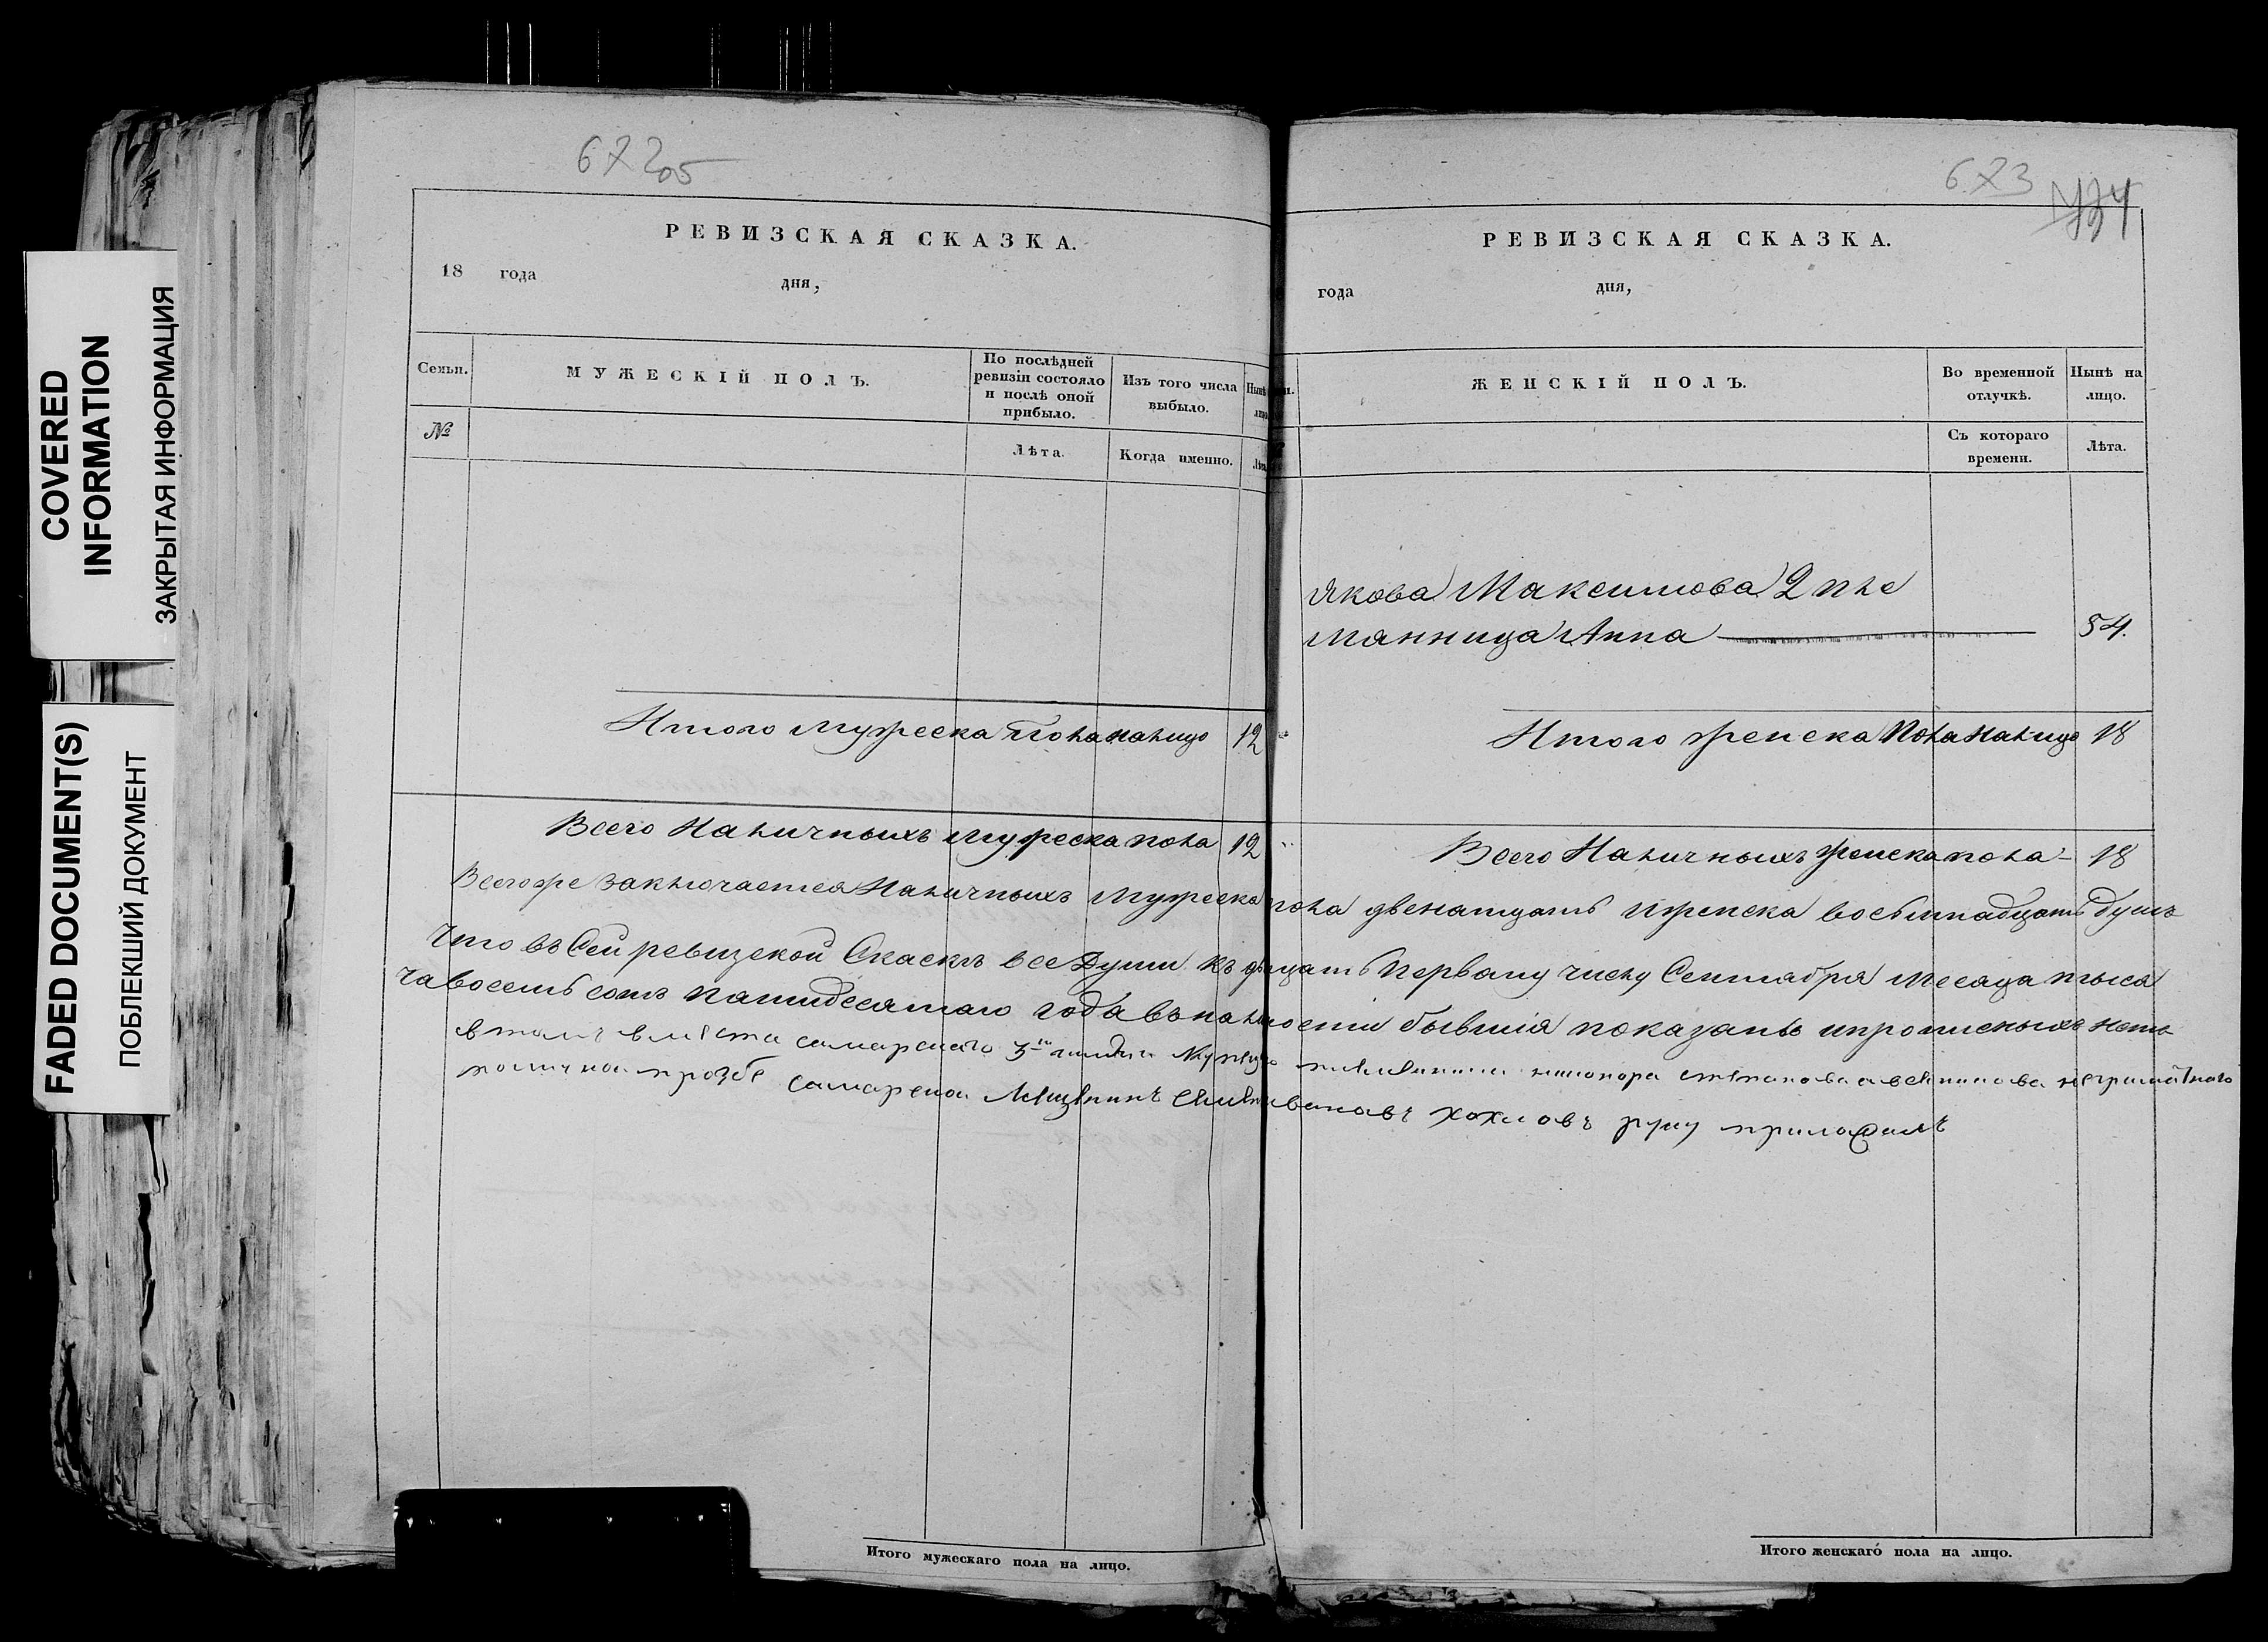 COVERED
INFORMATION
ЗАКРЫТАЯ ИНФОРМАЦИЯ
FADED DOCUMENT(S)
ПОБЛЕКШИЙ ДОКУМЕНТ
672
РЕВИЗСКАЯ СКАЗКА.
18 года дня,
Семьи. МУЖЕСКІЙ ПОЛЪ. По послѣдней ревизіи состояло и послѣ оной прибыло. Изъ того числа выбыло. Нынѣ
№ Лѣта. Когда именно.
Итого мужеска пола налицо 12
Всего Наличныхъ мужеска пола 12
673
РЕВИЗСКАЯ СКАЗКА.
года дня,
ЖЕНСКІЙ ПОЛЪ. Во временной отлучкѣ. Нынѣ на лицо.
Съ котораго времени. Лѣта.
Якова Максимова 2 пле
мянница Анна 54.
Итого женска пола налицо 18
Всего Наличныхъ женска пола 18
Всегоже заключается Наличныхъ мужеска пола двенатцать иженска восемнадцать душъ
Что въ Сей ревизской Скаскѣ все Души къ дватцать первому числу Сентября месяца тыся
ча восемь сотъ пятидесятаго года въ наличности бывшія показаны ипрописныхъ нетъ
втомъ вместа самарскаго 3 гилдіи купца никонора степанова неграматнаго
поличной прозбе самарской Мещенинъ иванавъ хохловъ руку приложилъ
Итого мужескаго пола на лицо.
Итого женскаго пола на лицо.